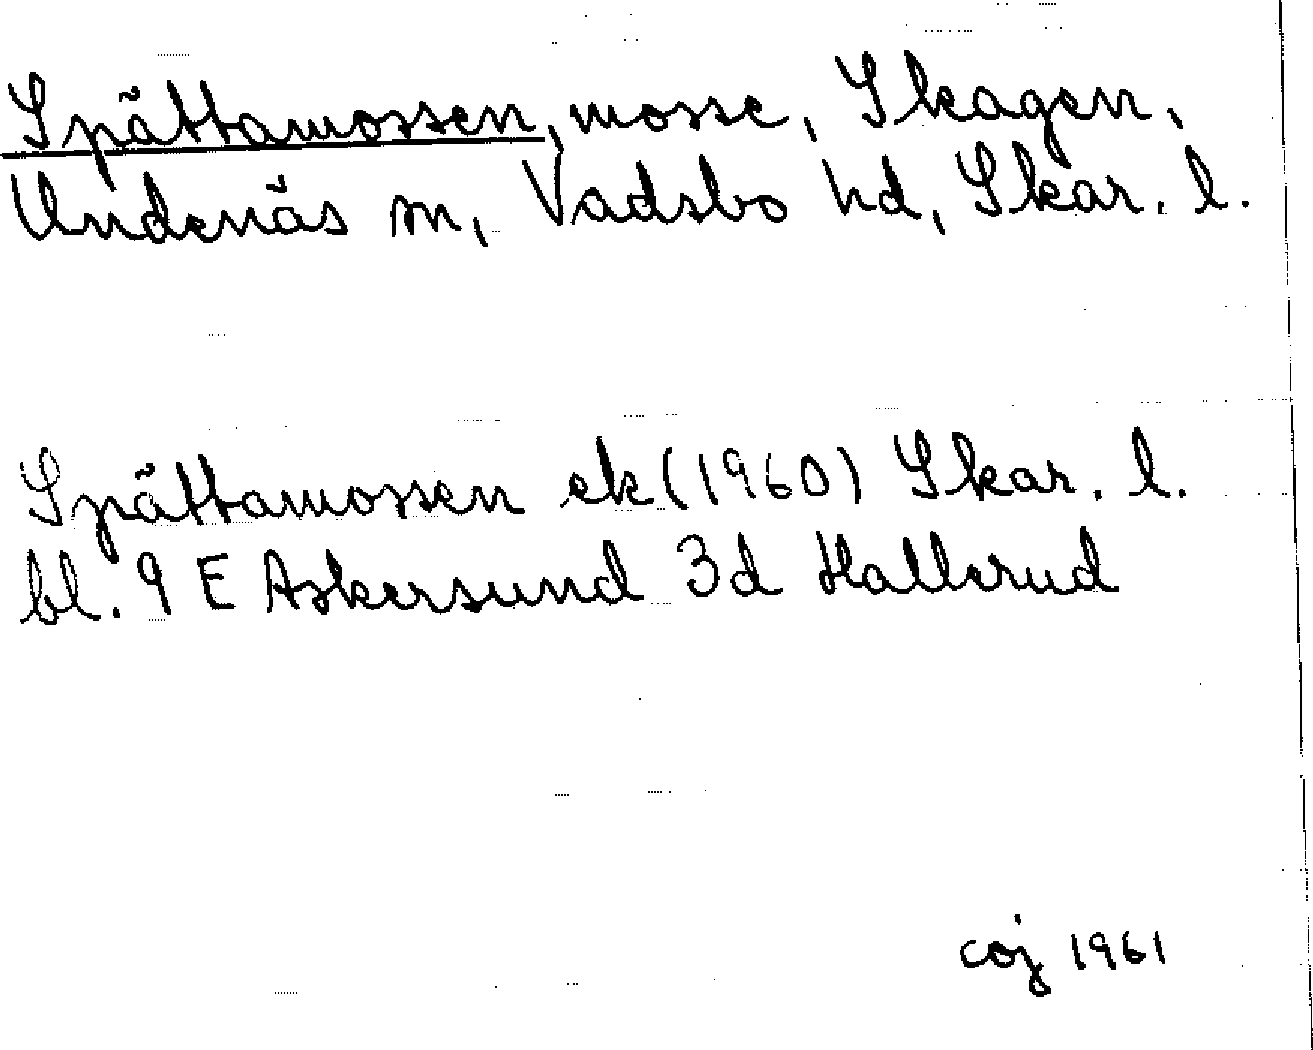 Spättamossen, mosse, Skagen,
Undenäs sn, Vadsbo hd, Skar. l.
Spättamossen ek (1960) Skar. l.
bl. 9 E Askersund 3d Hallerud
coj 1961